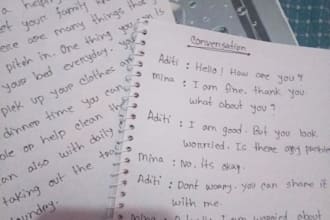 a help
et your family kn
ere are many things that
pitch in. One thing you
your bed everyday. You
pick up your clothes a
dinner time you can
ble or help clean the
an also with daily
taking out the tra
laundry.
Conversation
Aditi : Hello! How are you?
Mina : I am fine, thank you
what about you?
Aditi : I am good. But you look
worried. Is there any problem
Mina : No. Its okay.
Aditi : Dont worry. you can share it
with me.
worried about